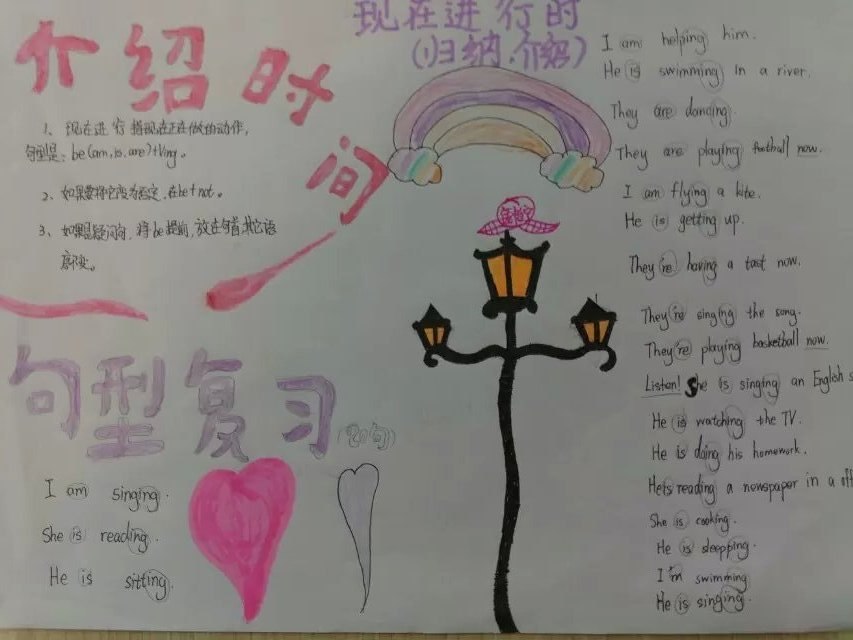 现在进行时
(归纳.介绍)
介绍时间
1、现在进行指现在正在做的动作,
句型是:be(am,is,are)+Ving。
2、如果要将它改为否定,在be+not。
3、如果是疑问句,将be提前,放在句首,其它语
序不变。
句型复习(20句)
I am singing.
She is reading.
He is sitting.
I am helping him.
He is swimming in a river.
They are dancing.
They are playing football now.
I am flying a kite.
He is getting up.
They're having a tast now.
They're singing the song.
They're playing basketball now.
Listen! She is singing an English s
He is watching the TV.
He is doing his homework.
He's reading a newspaper in a off
She is cooking.
He is sleepping.
I'm swimming
He is singing.